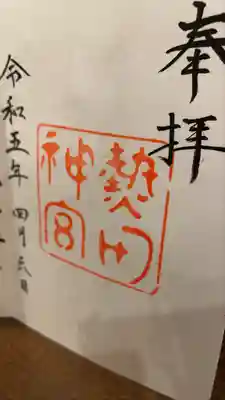 奉拝
熱田
神宮
令和五年 四月